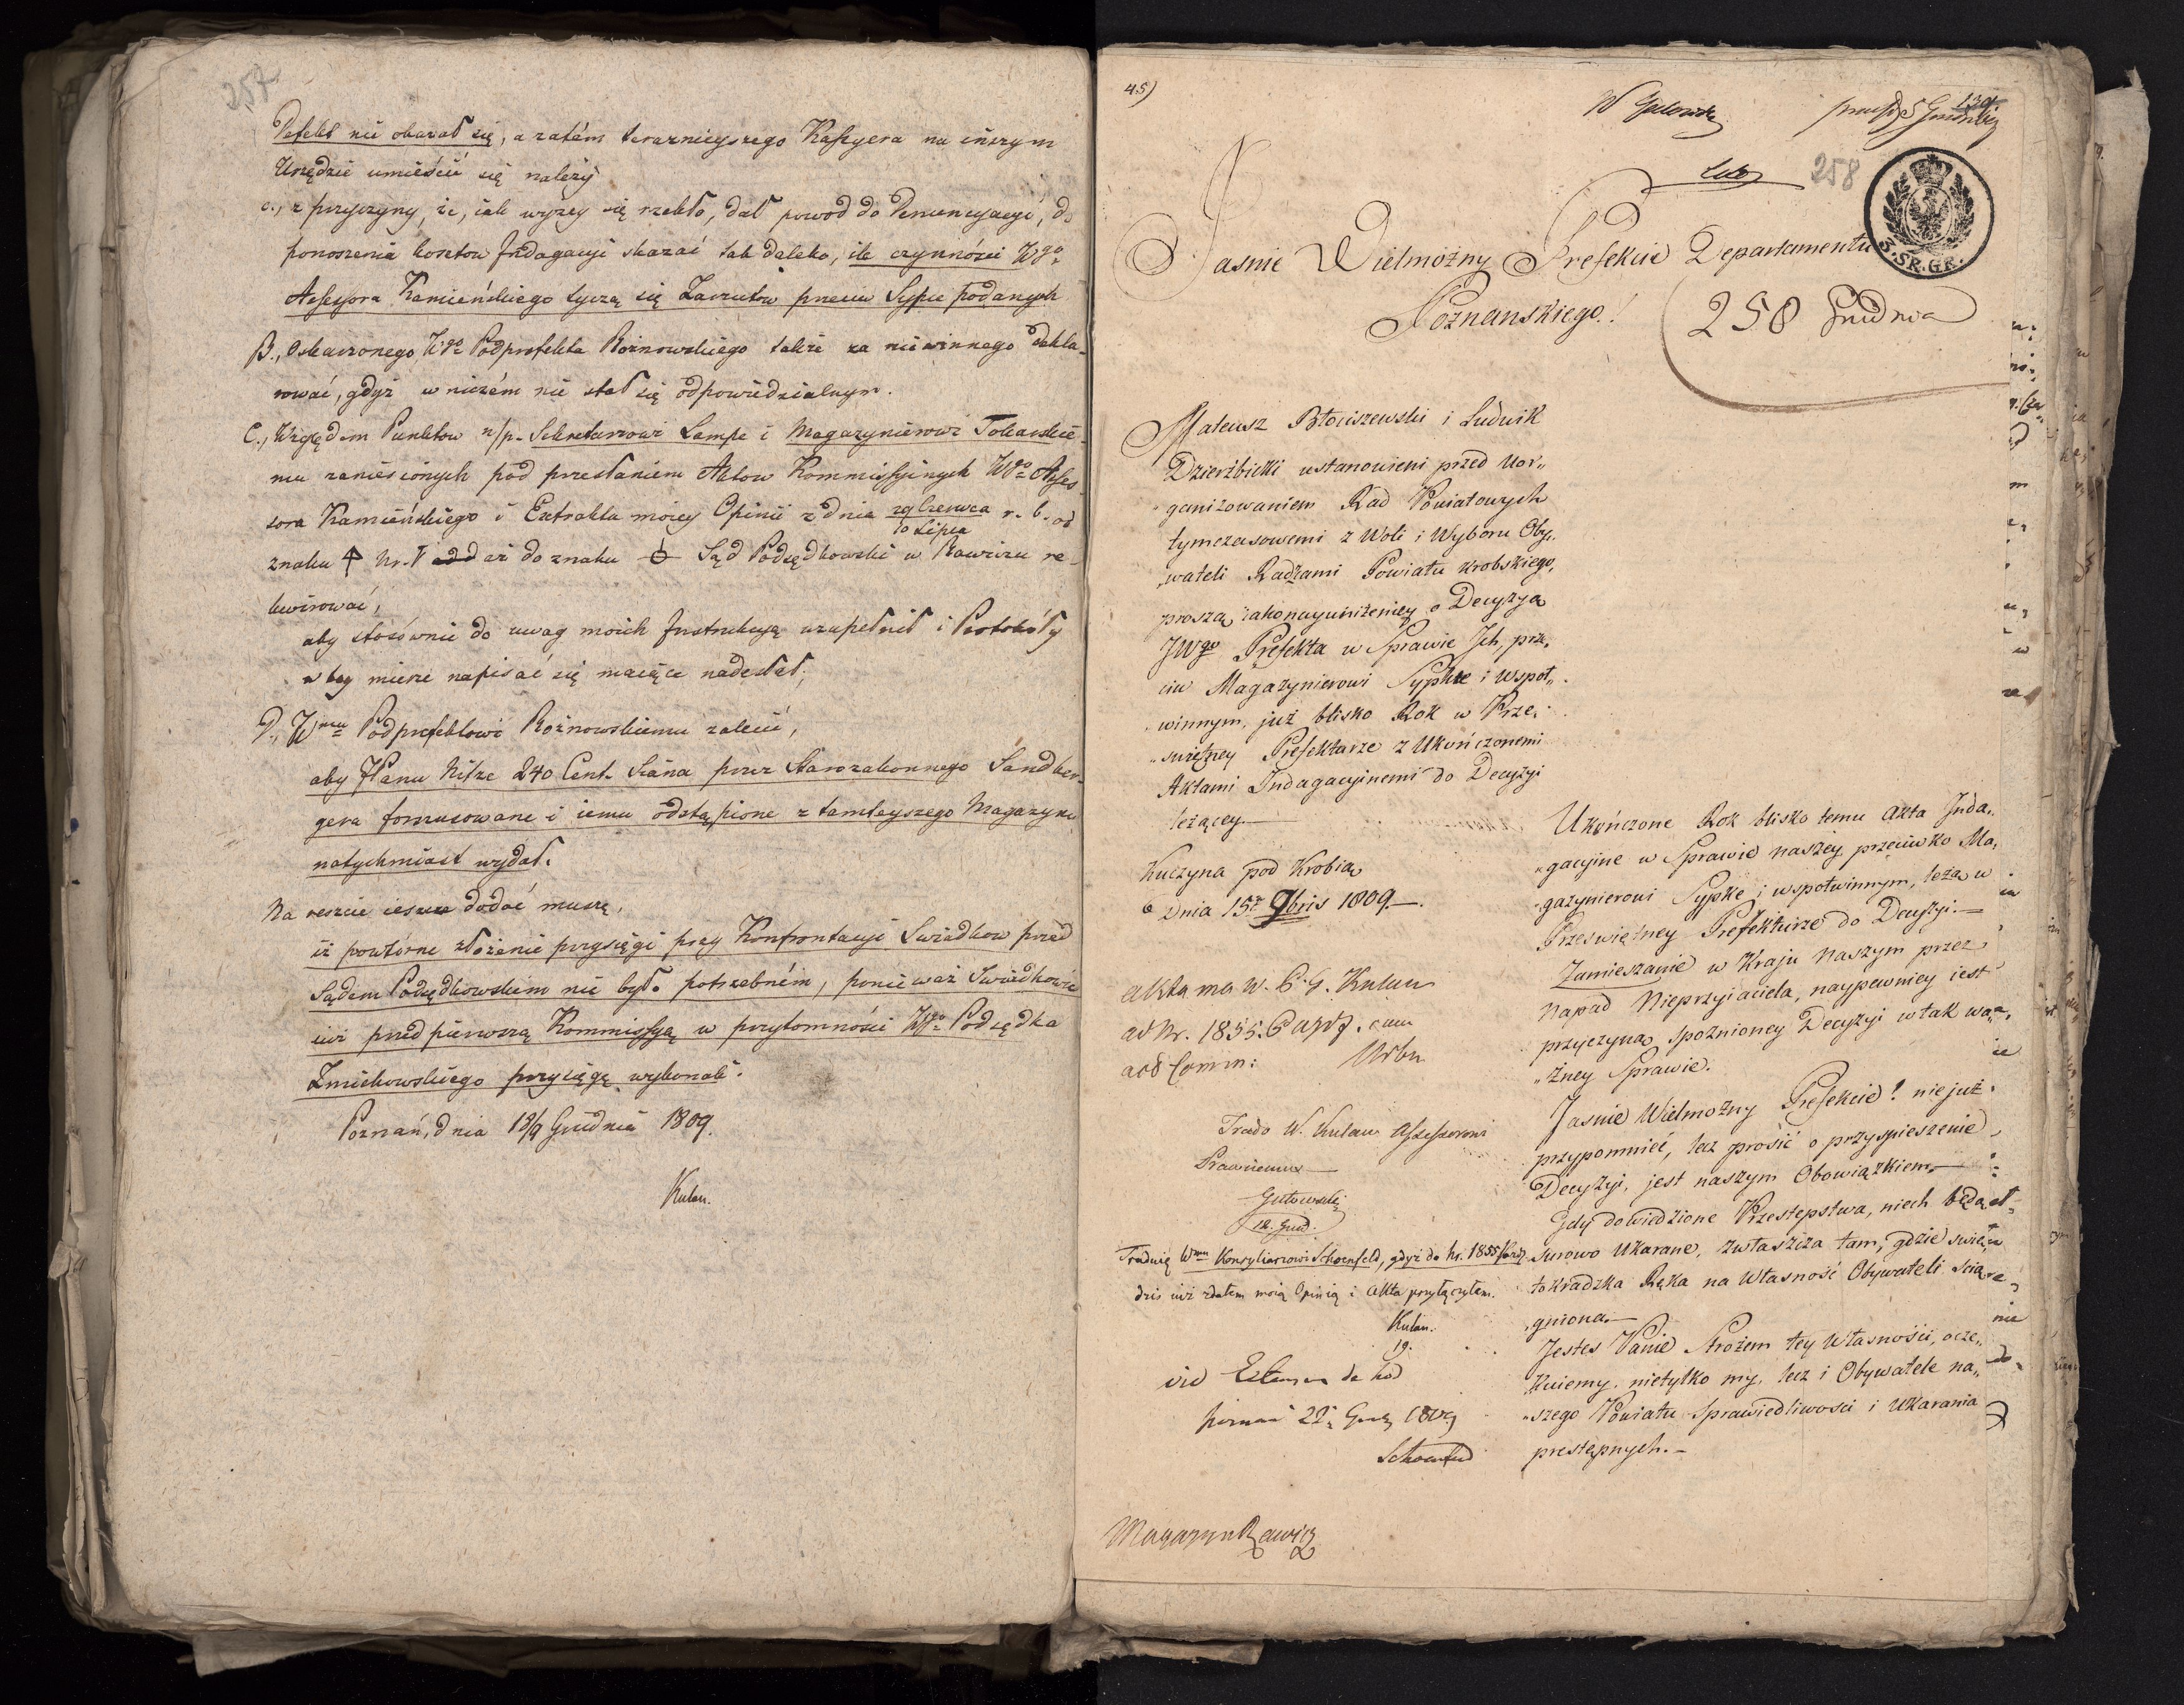 257
Defekt nie okazał się, a zatém teraznieyszego Kassyera na inszym
Urzędzie umieścić się należy
c., z przyczyny, że, iak wyżey się rzekło, dał powod do Denuncyacyi, do
ponoszenia kosztow Indagacyi skazać tak daleko, ile czynności Wgo
Assessora Kamieńskiego tyczą się Zarzutow przeciw Sypce podanych
B., Oskarzonego Wgo Podprefekta Rożnowskiego także za niewinnego dekla-
rować, gdyż w niczém nie stał się odpowiedzialnym.
C., Względem Punktow n/p. Sekretarzowi Lampe i Magazynierowi Tokarskie-
mu zaniesionych pod przesłaniem Aktow Kommissyinych Wgo Asses-
sora Kamieńskiego i Extraktu moiey Opinii z dnia 29 Czerwca r. b. od
10 Lipca
znaku Nr. 1 aż do znaku Sąd Podsędkowski w Rawiczu re-
kwirować,
aby stosównie do uwag moich Instrukcyą uzupełnił i Protokóły
w tey mierze napisać się maiące nadesłał;
D., Wmu Podprefektowi Rożnowskiemu zalecić,
aby JPanu Nitze 240 Cent. Siana przez Starozakonnego Sandber-
gera forszusowane i iemu odstąpione z tamteyszego Magazynu
natychmiast wydał.
Na reszcie ieszcze dodać muszę,
iż powtórne złożenie przysięgi przy Konfrontacyi Swiadkow przed
Sądem Podsędkowskim nie było potrzebném, ponieważ Swiadkowie
iuż przed pierwszą Kommissyą w przytomności Wgo Podsędka
Zmichowskiego przysięgę wykonali.
Poznań, dnia 18/9 Grudnia 1809.
Kulau.
45)
W Gutowski
139.
258
3. SR. GR.
Jasnie Wielmożny Prefekcie Departamentu
Poznanskiego!
258 Grudnia
Mateusz Błociszewski i Ludwik
Dzierżbicki ustanowieni przed Uor„
„ganizowaniem Rad Powiatowych
tymczasowemi z Woli i Wyboru Oby„
„wateli Radzami Powiatu Krobskiego,
proszą iako nayuniżeniey o Decyzyą
JWgo Prefekta w Sprawie Ich, prze„
ciw Magazynierowi Sypke i wspoł„
„winnym, już blisko Rok w Prze„
„swiętney Prefekturze z Ukończonemi
Aktami Indagacyinemi do Decyzyi
leżącey.—
Kuczyna pod Krobią
Dnia 15go 9bris 1809.—
Akta ma W. Kulau
ad Nr. 1855. cum
act Comm:
Trado W. Kulau Assessorowi
Prawnemu—
Gutowski
18. Grud.
Traduię Wmu Konsyliarzowi Schoenfeld, gdyż do Nr. 1855
dzis iuż zdałem moią Opinią i Akta przyłączyłem.
Kulau.
19.
Poznań 22. Grud 1809
Schoenfeld
Magazyn Rawicz
Ukończone Rok blisko temu Akta Inda„
„gacyine w Sprawie naszey przeciwko Ma„
„gazynierowi Sypke i wspołwinnym, leżą w
Przeswiętney Prefekturze do Decyzyi.—
Zamieszanie w Kraju Naszym przez
Napad Nieprzyiaciela, naypewniey iest
przyczyną spoznioney Decyzyi w tak wa„
„żney Sprawie.
Jasnie Wielmożny Prefekcie! nie już
przypomnieć, lecz prosić o przyspieszenie
Decyzyi, jest naszym Obowiązkiem.—
Gdy dowiedzione Przestepstwa, niech będą
surowo Ukarane, zwłaszcza tam, gdzie swię„
tokradzka Ręka na Własność Obywateli scią„
„gniona.—
Jestes Panie Strożem tey Własności, ocze„
kuiemy, nietylko my, lecz i Obywatele na„
„szego Powiatu Sprawiedliwosci i Ukarania
prestępnych.—